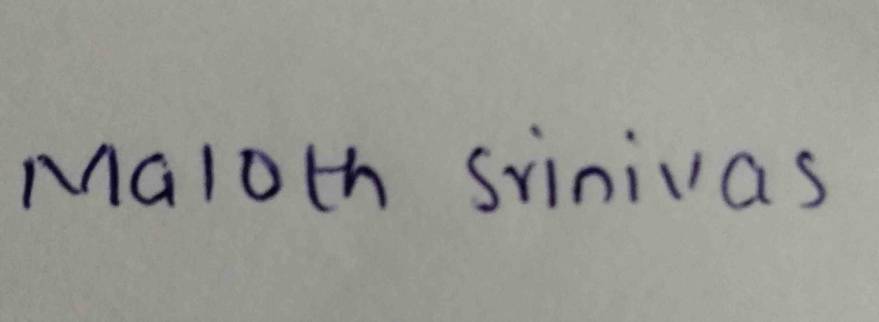 Maloth Srinivas